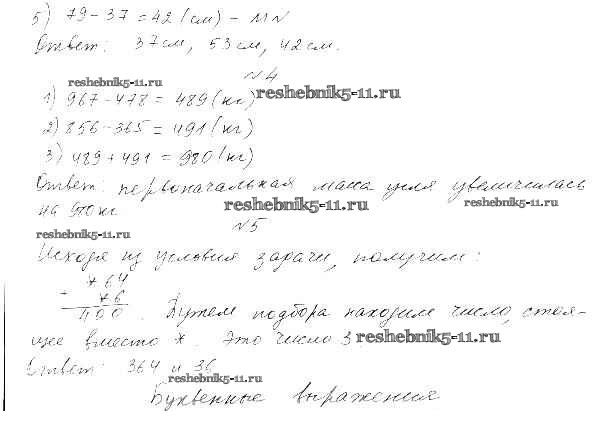 5) 79-37=42 (см) - MN
Ответ: 37см, 53см, 42см.
№4
reshebnik5-11.ru
1) 967-478=489(кг) reshebnik5-11.ru
2) 856-365=491(кг)
3) 489+491=980(кг)
Ответ: первоначальная маса угля увеличилась
на кг reshebnik5-11.ru reshebnik5-11.ru
reshebnik5-11.ru №5
Исходя из условия задачи, получим:
*64
+ *6
400. Путем подбора находим число, стоя-
щее вместо *. Это число 3 reshebnik5-11.ru
Ответ: 364 и 36
reshebnik5-11.ru
Буквенные выражения